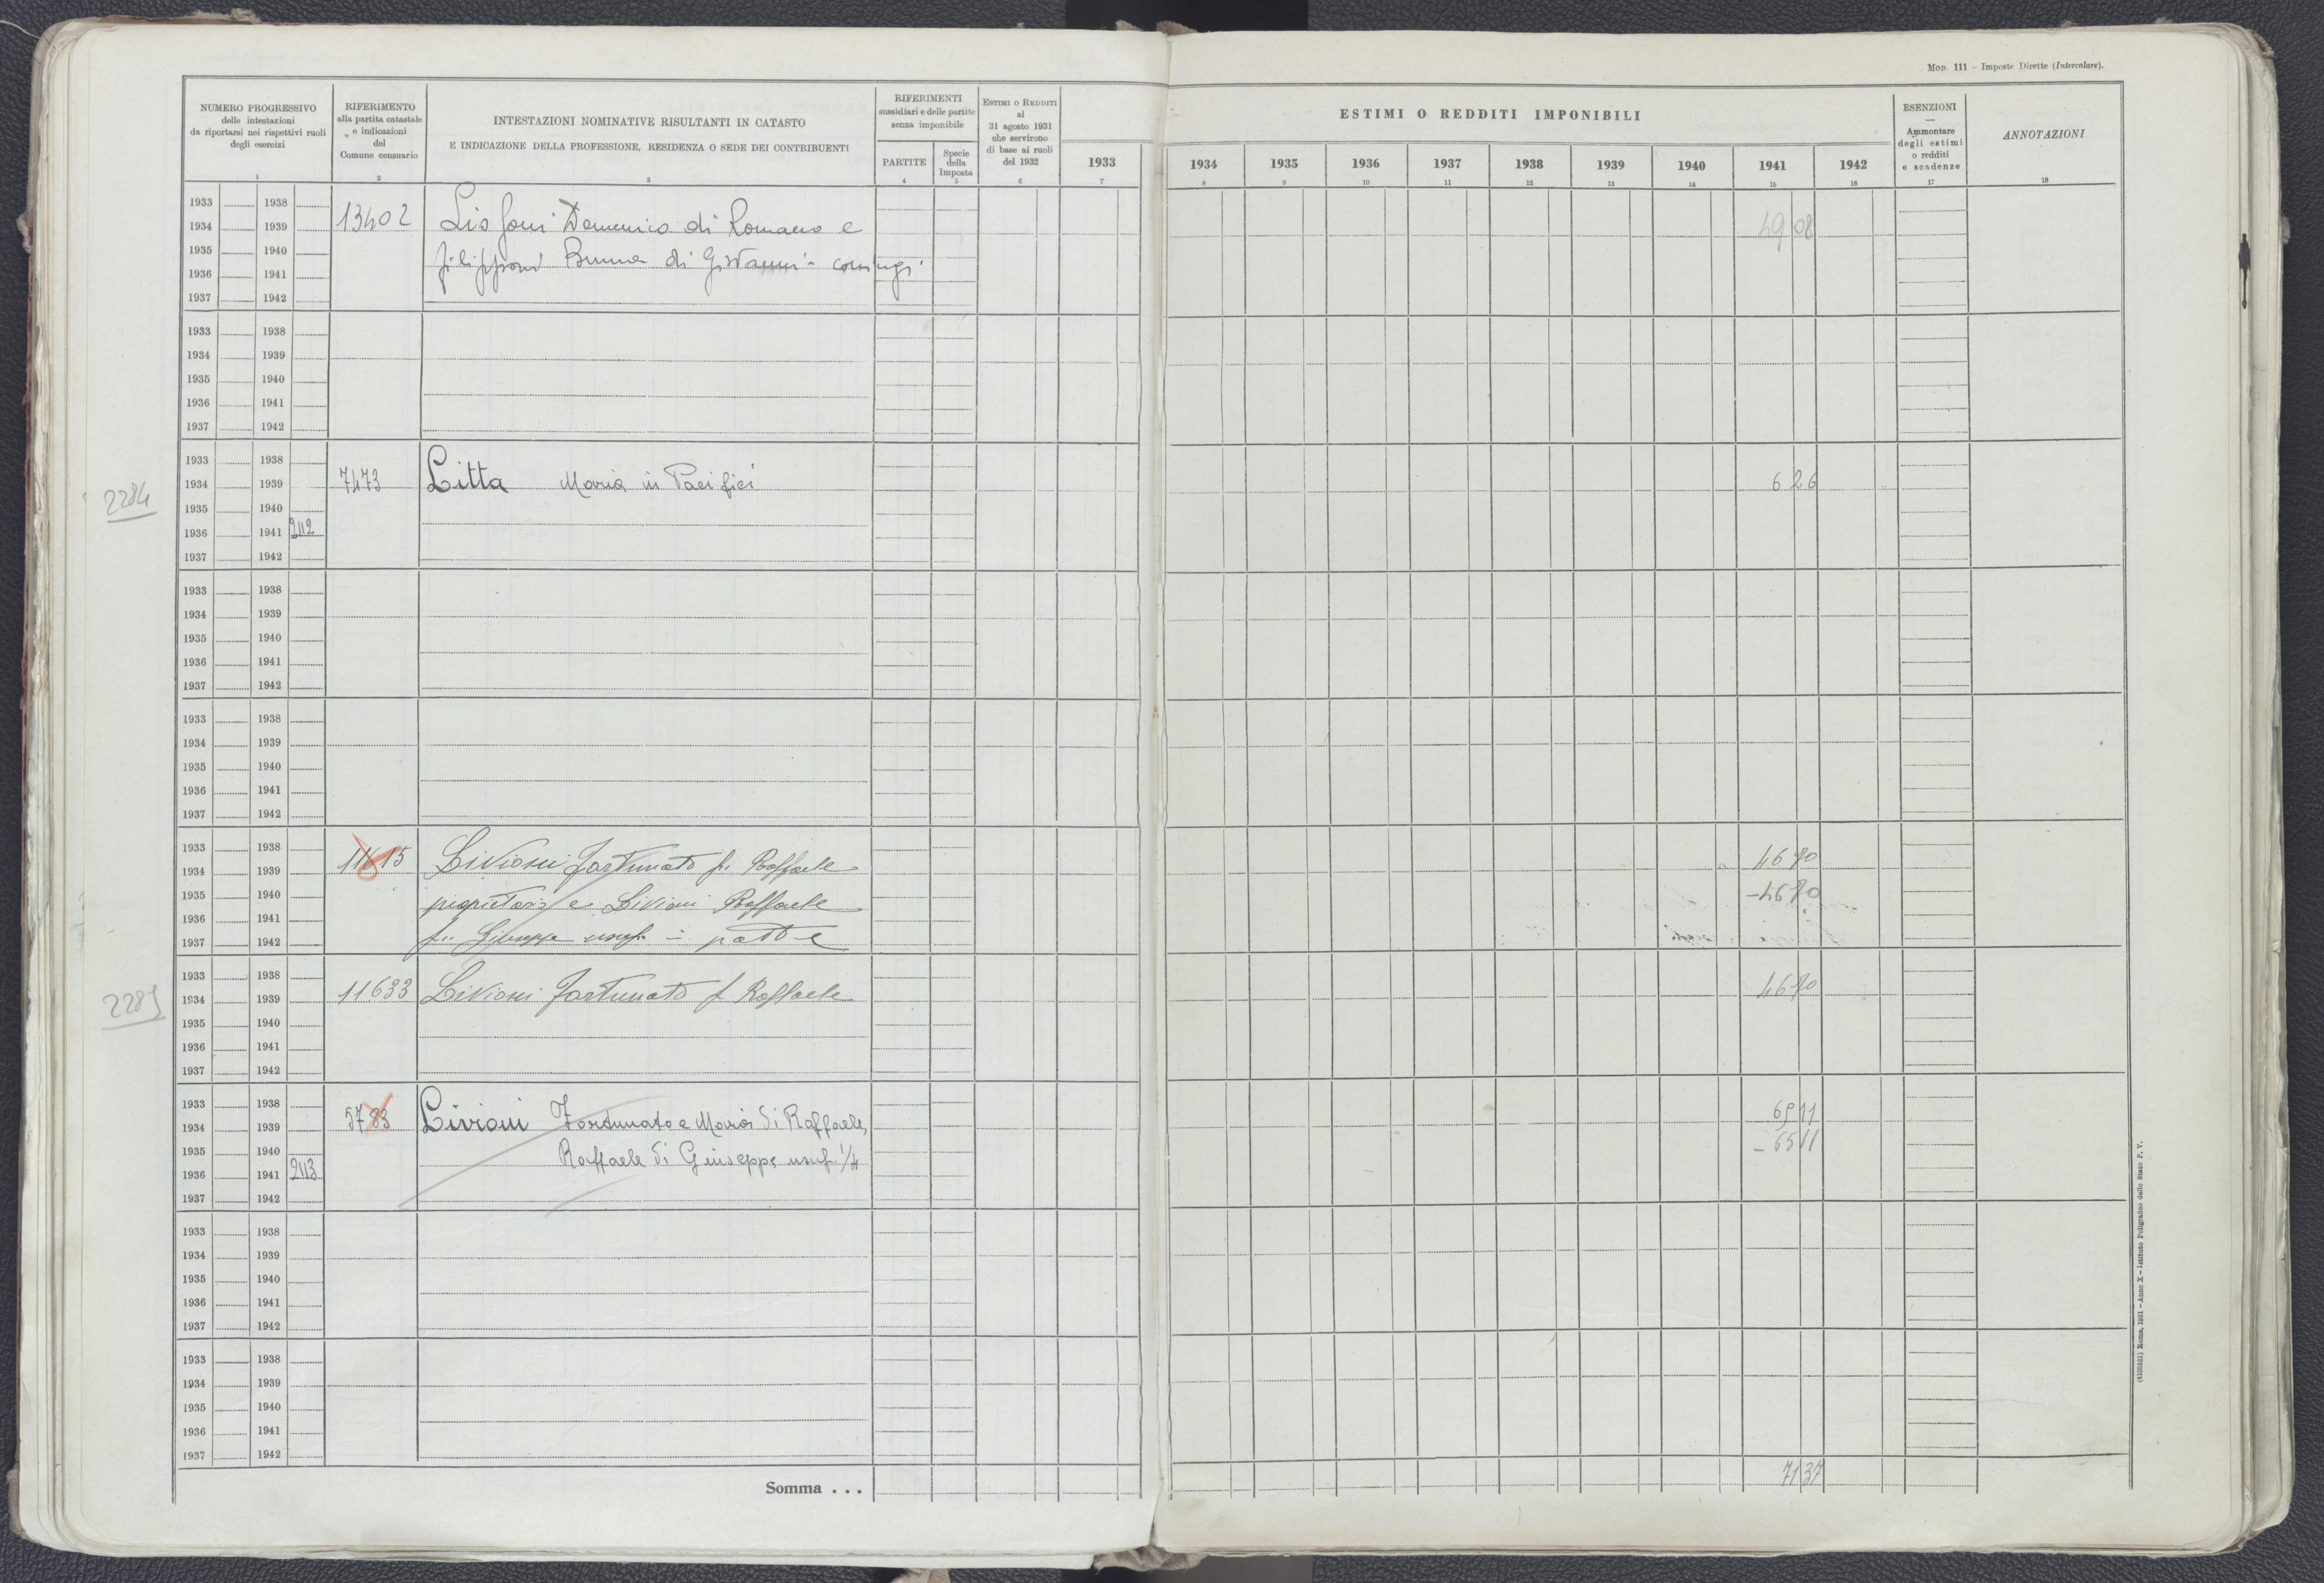 Mod. 111 – Imposte Dirette (Intercalare).
NUMERO PROGRESSIVO
delle intestazioni
da riportarsi nei rispettivi ruoli
degli esercizi
1
RIFERIMENTO
alla partita catastale
e indicazioni
del
Comune censuario
2
INTESTAZIONI NOMINATIVE RISULTANTI IN CATASTO
E INDICAZIONE DELLA PROFESSIONE, RESIDENZA O SEDE DEI CONTRIBUENTI
3
RIFERIMENTI
sussidiari e delle partite
senza imponibile
PARTITE
4
Specie
della
Imposta
5
ESTIMI O REDDITI
al
31 agosto 1931
che servirono
di base ai ruoli
del 1932
6
ESTIMI O REDDITI IMPONIBILI
1933 1934 1935 1936 1937 1938 1939 1940 1941 1942
7 8 9 10 11 12 13 14 15 16
ESENZIONI
—
Ammontare
degli estimi
o redditi
e scadenze
17
ANNOTAZIONI
18
1933 1938
1934 1939 13402 Domenico di Romano e 49 08
1935 1940
Bruna di Giovanni - coniugi
1936 1941
1937 1942
1933 1938
1934 1939
1935 1940
1936 1941
1937 1942
1933 1938
2284 1934 1939 7473 Litta Maria in Pacifici 6 26
1935 1940
1936 1941 2112
1937 1942
1933 1938
1934 1939
1935 1940
1936 1941
1937 1942
1933 1938
1934 1939
1935 1940
1936 1941
1937 1942
1933 1938
1934 1939 11615 Livioni Fortunato fu Raffaele 46 70
1935 1940 proprietario e Livioni Raffaele -46 70
1936 1941
1937 1942 fu Giuseppe usuf. in parte
1933 1938
1934 1939 11633 Livioni Fortunato f Raffaele 46 70
1935 1940
1936 1941
1937 1942
1933 1938
1934 1939 5783 Livioni Fortunato e Maria di Raffaele, 65 11
1935 1940 Raffaele di Giuseppe usuf. 1/4 - 65 11
1936 1941 2113
1937 1942
1933 1938
1934 1939
1935 1940
1936 1941
1937 1942
1933 1938
1934 1939
1935 1940
1936 1941
1937 1942
Somma . . . 71 37
(4102351) Roma, 1931 – Anno X – Istituto Poligrafico dello Stato P. V.